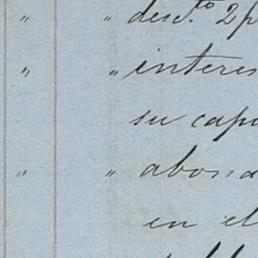 " " desc.to 2p
" " interes
su cap
" " abona
en el